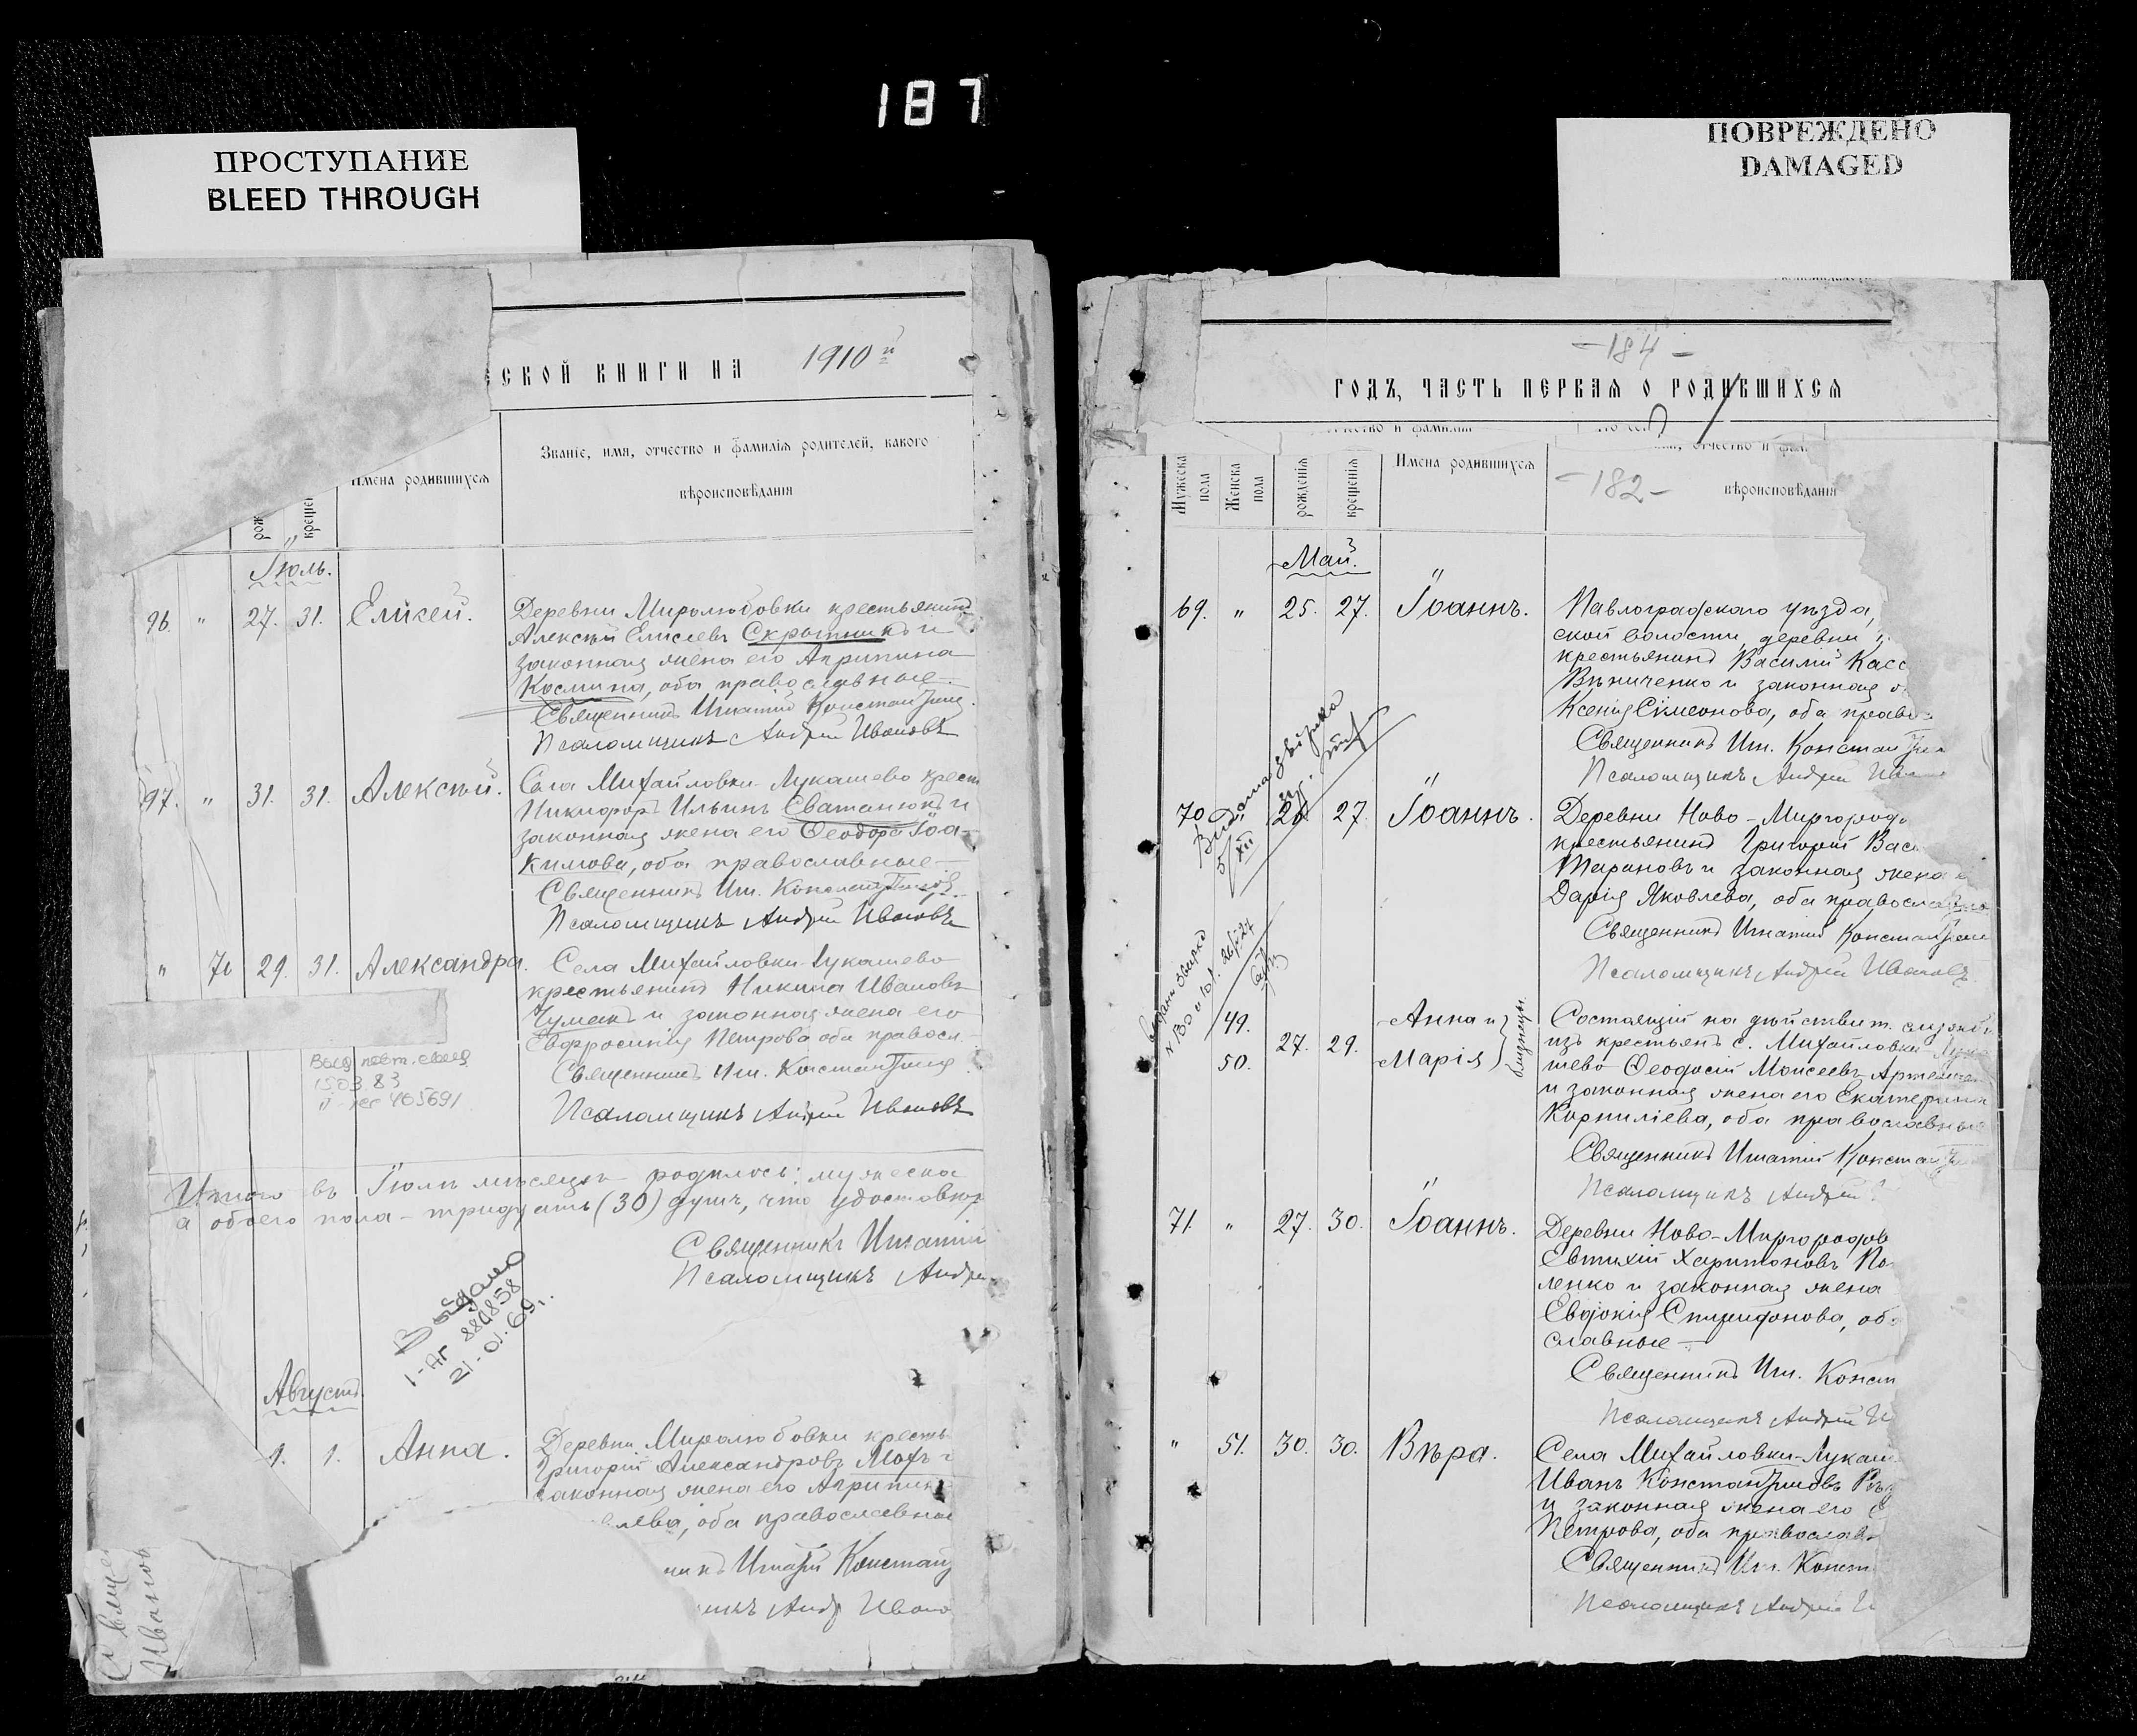 187
ПРОСТУПАНИЕ
BLEED THROUGH
ПОВРЕЖДЕНО
DAMAGED
СКОЙ КНИГИ НА 1910й
Имена родившихся
Званіе, имя, отчество и фамилія родителей, какого
вѣроисповѣданія
Іюль.
96. " 27. 31. Елисей. Деревни Миролюбовки крестьянинъ
Алексѣй Елисеевъ Скрытникъ и
законная жена его Агрипина
Космина, оба православные.
Священникъ Игнатій Константинов
Псаломщикъ Андрей Ивановъ
97. " 31. 31. Алексѣй. Села Михайловки-Лукашево крест
Никифоръ Ильинъ Сватанюкъ и
законная жена его Феодора Іоа-
кимова, оба православные
Священникъ Игн. Константинов
Псаломщикъ Андрей Ивановъ
" 71 29. 31. Александра. Села Михайловки-Лукашево
крестьянинъ Никита Ивановъ
Чумакъ и законная жена его
Евфросинія Петрова оба правосл.
Священникъ Игн. Константинов
Псаломщикъ Андрей Ивановъ
15.03.83
405691
Итого въ Іюлѣ мѣсяцѣ родилось: мужеска
а обоего пола - тридцать (30) душъ, что удостовѣр
Священникъ Игнатій
Псаломщикъ Андрей
Выдано
1-АГ 884858
21-01.69г.
Августъ.
1. 1. Анна. Деревни Миролюбовки кресть
Григорій Александровъ Мохъ и
законная жена его Агрипина
лева, оба православные
никъ Игнатій Констант
икъ Андр Ивано
Священ
Иванов
-184-
ГОДЪ, ЧАСТЬ ПЕРВАЯ О РОДИВШИХСЯ
Мужеска пола
Женска пола
рожденія
крещенія
Имена родившихся
-182-
вѣроисповѣданія
Май.
69. " 25. 27. Іоаннъ. Павлоградскаго уѣзда,
ской волости, деревни
крестьянинъ Василій Касс
Вѣниченко и законная
Ксенія Сімеонова, оба право
Священникъ Игн. Констан
Псаломщикъ Андрей Ива
70 " 26 27. Іоаннъ. Деревни Ново-Миргород
крестьянинъ Григорій Вас
Тарановъ и законная жена
Дарія Яковлева, оба православ
Священникъ Игнатій Констан
Псаломщикъ Андрей Ивановъ
49. 50. 27. 29. Анна и Марія близнецы Состоящій на дѣйствит. службѣ
изъ крестьянъ с. Михайловки-Лука
шево Феодосій Моисеевъ Артемен
и законная жена его Екатерина
Корниліева, оба православные
Священникъ Игнатій Констан
Псаломщикъ Андрей
71. " 27. 30. Іоаннъ. Деревни Ново-Миргородов
Евтихій Харитоновъ По
ленко и законная жена
Евдокія Спиридонова, об
славные
Священникъ Игн. Конст
Псаломщикъ Андрей
" 51. 30. 30. Вѣра. Села Михайловки-Лукаш
Иванъ Константиновъ
и законная жена его
Петрова, оба православ
Священникъ Игн. Конст
Псаломщикъ Андрей